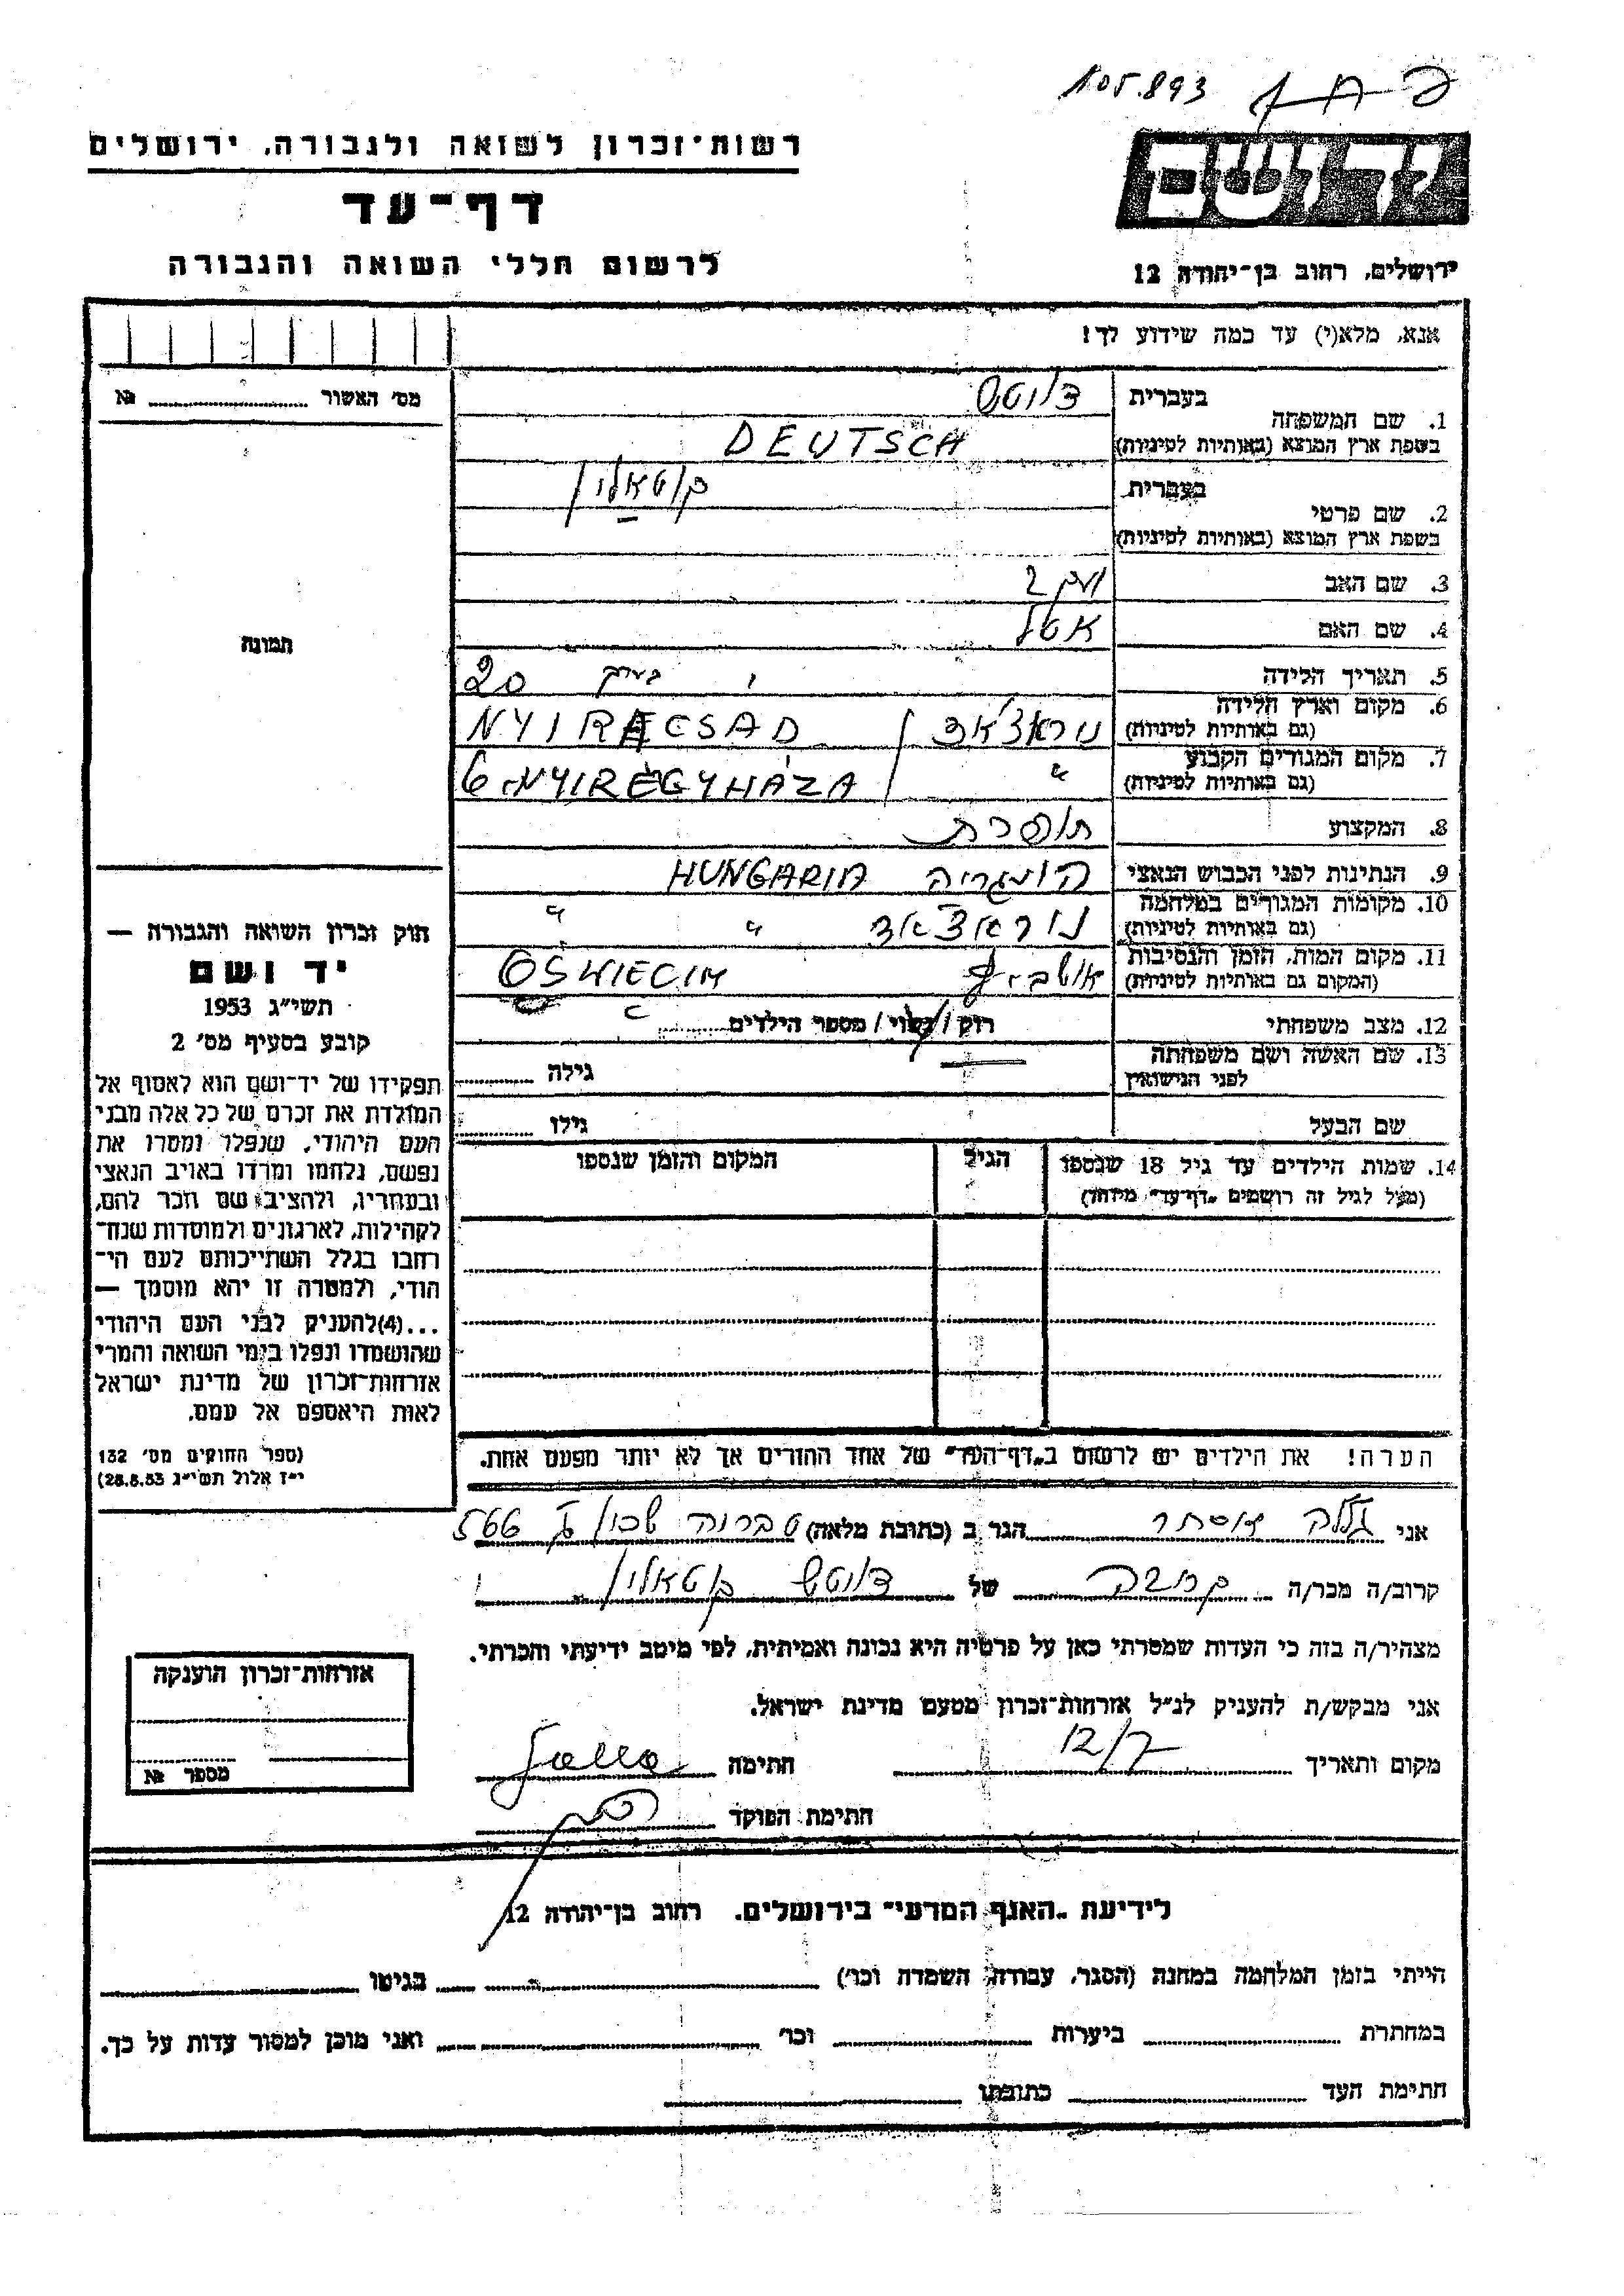 105.893
רשות־זכרון לשואה ולגבורה, ירושלים
דף־עד
לרשום חללי השואה והגבורה
יד ושם
ירושלים, רחוב בן־יהודה 12
אנא, מלא(י) עד כמה שידוע לך!
מס׳ האשור № 
תמונה
1. שם המשפחה
בעברית דויטש
בשפת ארץ המוצא (באותיות לטיניות) DEUTSCH
2. שם פרטי
בעברית
בשפת ארץ המוצא (באותיות לטיניות)
3. שם האב
4. שם האם אטל
5. תאריך הלידה 20
6. מקום וארץ הלידה
(גם באותיות לטיניות) NYIRACSAD
7. מקום המגורים הקבוע
(גם באותיות לטיניות) " NYIREGYHÁZA
8. המקצוע תופרת
9. הנתינות לפני הכבוש הנאצי הונגריה HUNGARIA
10. מקומות המגורים במלחמה
(גם באותיות לטיניות) " "
11. מקום המות, הזמן והנסיבות
(המקום גם באותיות לטיניות) אושביץ OŚWIECIM
12. מצב משפחתי רוק / נשוי / מספר הילדים
13. שם האשה ושם משפחתה
לפני הנישואין גילה
שם הבעל גילו
14. שמות הילדים עד גיל 18 שנספו
(מעל לגיל זה רושמים „דף־עד״ מיוחד)
הגיל
המקום והזמן שנספו
חוק זכרון השואה והגבורה —
יד ושם
תשי״ג 1953
קובע בסעיף מס׳ 2
תפקידו של יד־ושם הוא לאסוף אל
המולדת את זכרם של כל אלה מבני
העם היהודי, שנפלו ומסרו את
נפשם, נלחמו ומרדו באויב הנאצי
ובעוזריו, ולהציב שם וזכר להם,
לקהילות, לארגונים ולמוסדות שנח־
רבו בגלל השתייכותם לעם הי־
הודי, ולמטרה זו יהא מוסמך —
...(4)להעניק לבני העם היהודי
שהושמדו ונפלו בימי השואה והמרי
אזרחות־זכרון של מדינת ישראל
לאות היאספם אל עמם.
(ספר החוקים מס׳ 132
י״ז אלול תשי״ג 28.8.53)
הערה! את הילדים יש לרשום ב„דף־העד״ של אחד ההורים אך לא יותר מפעם אחת.
אני גללה אסתר הגר ב (כתובת מלאה) טבריה שכון ג 566
קרוב/ה מכר/ה של דויטש
מצהיר/ה בזה כי העדות שמסרתי כאן על פרטיה היא נכונה ואמיתית, לפי מיטב ידיעתי והכרתי.
אני מבקש/ת להעניק לנ״ל אזרחות־זכרון מטעם מדינת ישראל.
מקום ותאריך 12/7 חתימה
חתימת הפוקד
אזרחות־זכרון הוענקה
מספר №
לידיעת „האגף המדעי״ בירושלים, רחוב בן־יהודה 12
הייתי בזמן המלחמה במחנה (הסגר, עבודה, השמדה וכו׳) בגיטו
במחתרת ביערות וכו׳ ואני מוכן למסור עדות על כך.
חתימת העד כתובתו